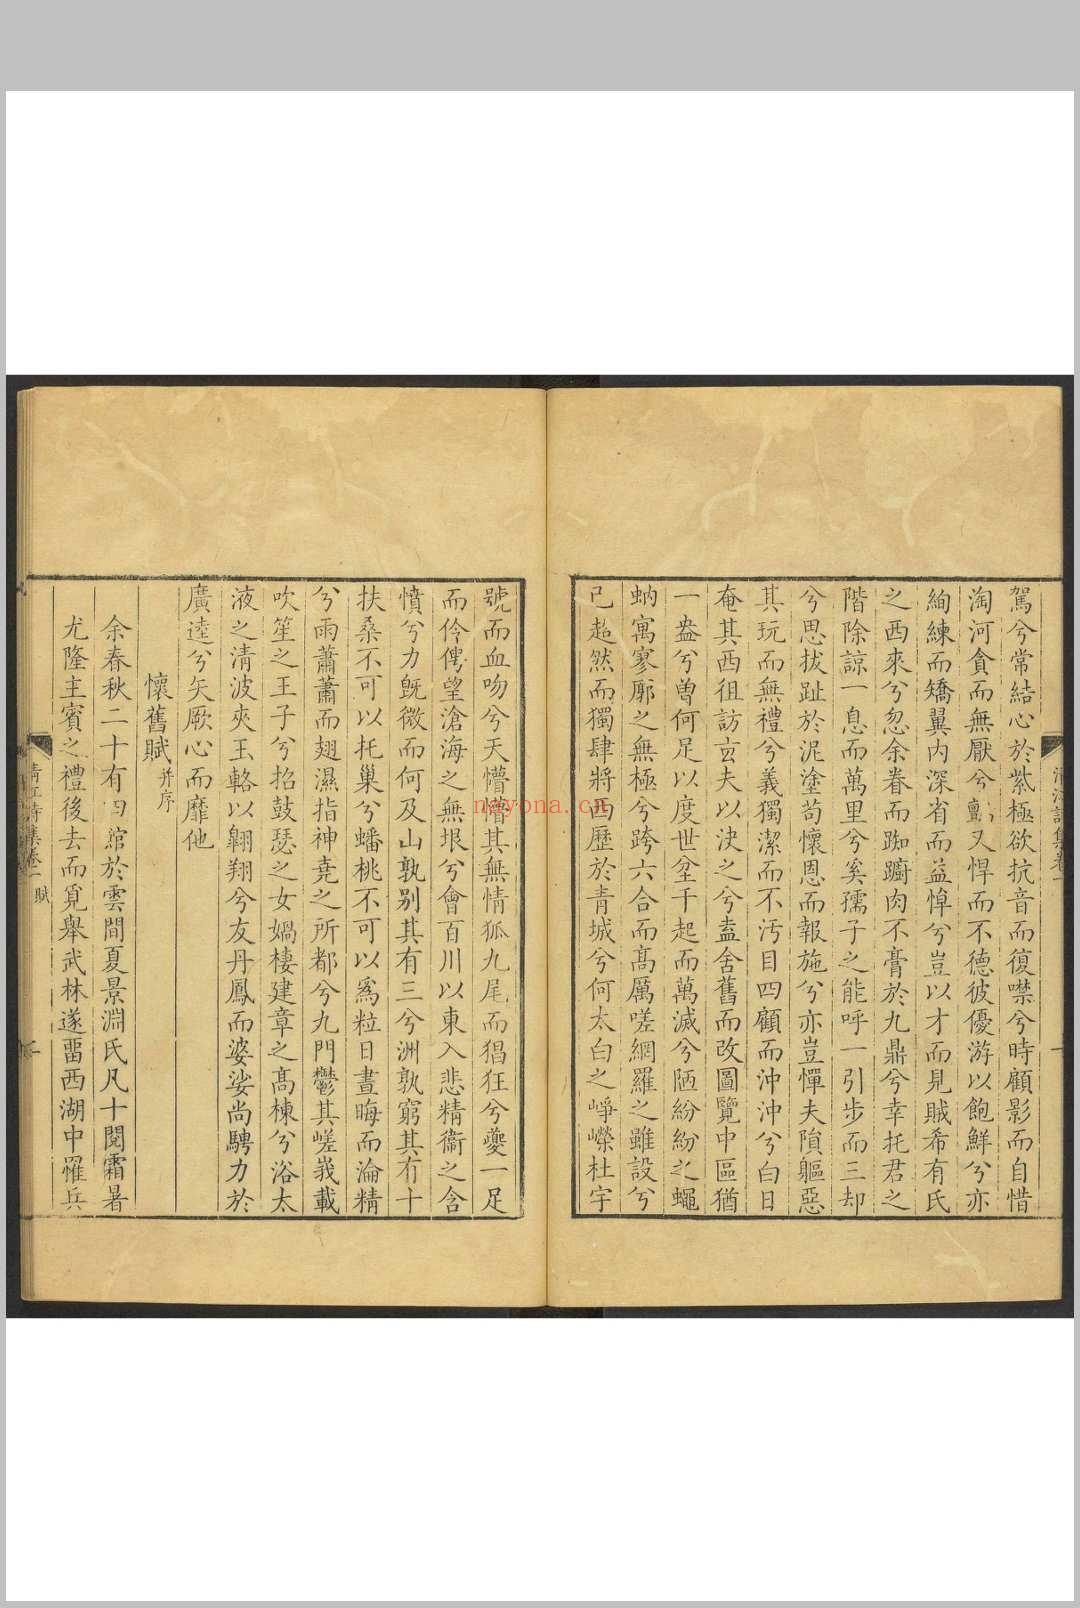 駕兮常結心於紫極欲抗音而復噤兮時顧影而自惜
淘河貪而無厭兮鸇又悍而不德彼優游以飽鮮兮亦
絢練而矯翼内深省而益悼兮豈以才而見賊希有氏
之西來兮忽余眷而踟躕肉不膏於九鼎兮幸托君之
階除諒一息而萬里兮奚孺子之能呼一引步而三却
兮思拔趾於泥塗苟懷恩而報施兮亦豈憚夫隕軀惡
其玩而無禮兮義獨潔而不汚目四顧而沖沖兮白日
奄其西徂訪玄夫以決之兮盍舍舊而改圖覽中區猶
一盎兮曽何足以度世坌千起而萬滅兮陋紛紛之蠅
蚋寓寥廓之無極兮跨六合而髙厲嗟網羅之雖設兮
已超然而獨肆將西歷於青城兮何太白之崢嶸杜宇
號而血吻兮天懵懵其無情狐九尾而猖狂兮夔一足
而伶俜望滄海之無垠兮會百川以東入悲精衞之含
憤兮力既微而何及山孰别其有三兮洲孰窮其有十
扶桑不可以托巢兮蟠桃不可以爲粒日晝晦而淪精
兮雨蕭蕭而翅濕指神堯之所都兮九門鬱其嵯峩載
吹笙之王子兮招鼓瑟之女媧棲建章之髙棟兮浴太
液之清波夾玉輅以翱翔兮友丹鳳而婆娑尚騁力於
廣逵兮矢厥心而靡他
懷舊賦 并序
余春秋二十有四舘於雲間夏景淵氏凡十閱霜暑
尤隆主賓之禮後去而覓舉武林遂畱西湖中罹兵
清江詩集卷一
賦
一
nayona.cn